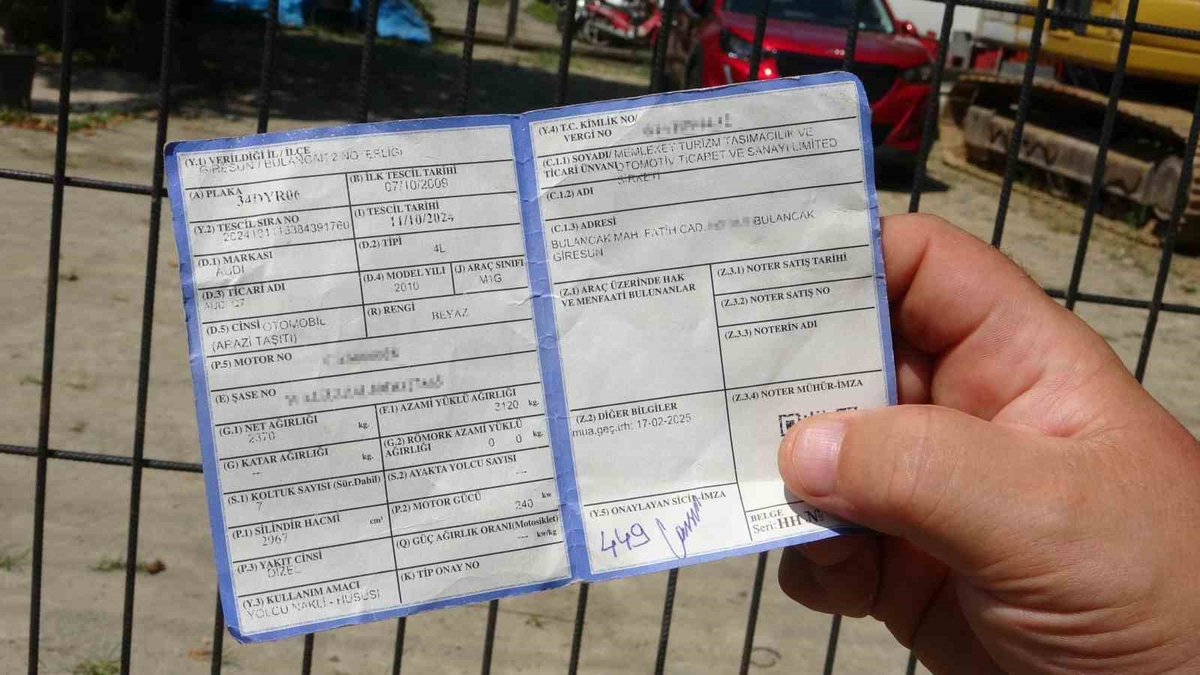 (Y.1) VERİLDİĞİ İL / İLÇE
GİRESUN / BULANCAK 2 NOTERLİĞİ
(A) PLAKA
34DYR06
(B) İLK TESCİL TARİHİ
07/10/2009
(Y.2) TESCİL SIRA NO
(I) TESCİL TARİHİ
11/10/2024
(D.1) MARKASI
AUDI
(D.2) TİPİ
4L
(D.3) TİCARİ ADI
AUDI Q7
(D.4) MODEL YILI
2010
(J) ARAÇ SINIFI
M1G
(D.5) CİNSİ OTOMOBİL
(ARAZİ TAŞITI)
(R) RENGİ
BEYAZ
(P.5) MOTOR NO
(E) ŞASE NO
(G.1) NET AĞIRLIĞI
2370 kg.
(F.1) AZAMİ YÜKLÜ AĞIRLIĞI
3120 kg.
(G) KATAR AĞIRLIĞI
--- kg.
(G.2) RÖMORK AZAMİ YÜKLÜ
AĞIRLIĞI 0 0 kg.
(S.1) KOLTUK SAYISI (Sür.Dahil)
7
(S.2) AYAKTA YOLCU SAYISI
---
(P.1) SİLİNDİR HACMİ
2967 cm³
(P.2) MOTOR GÜCÜ
240 kw
(P.3) YAKIT CİNSİ
DİZEL
(Q) GÜÇ AĞIRLIK ORANI(Motosiklet)
--- kw/kg
(Y.3) KULLANIM AMACI
YOLCU NAKLİ - HUSUSİ
(K) TİP ONAY NO
(Y.4) T.C. KİMLİK NO/
VERGİ NO
(C.1.1) SOYADI/ MEMLEKET TURİZM TAŞIMACILIK VE
TİCARİ ÜNVANI OTOMOTİV TİCARET VE SANAYİ LİMİTED
ŞİRKETİ
(C.1.2) ADI
(C.1.3) ADRESİ
BULANCAK MAH. FATİH CAD. BULANCAK
GİRESUN
(Z.1) ARAÇ ÜZERİNDE HAK
VE MENFAATİ BULUNANLAR
(Z.3.1) NOTER SATIŞ TARİHİ
(Z.3.2) NOTER SATIŞ NO
(Z.3.3) NOTERİN ADI
(Z.2) DİĞER BİLGİLER
mua.geç.trh: 17-02-2025
(Z.3.4) NOTER MÜHÜR-İMZA
(Y.5) ONAYLAYAN SİCİL-İMZA
449
BELGE
Seri: HH